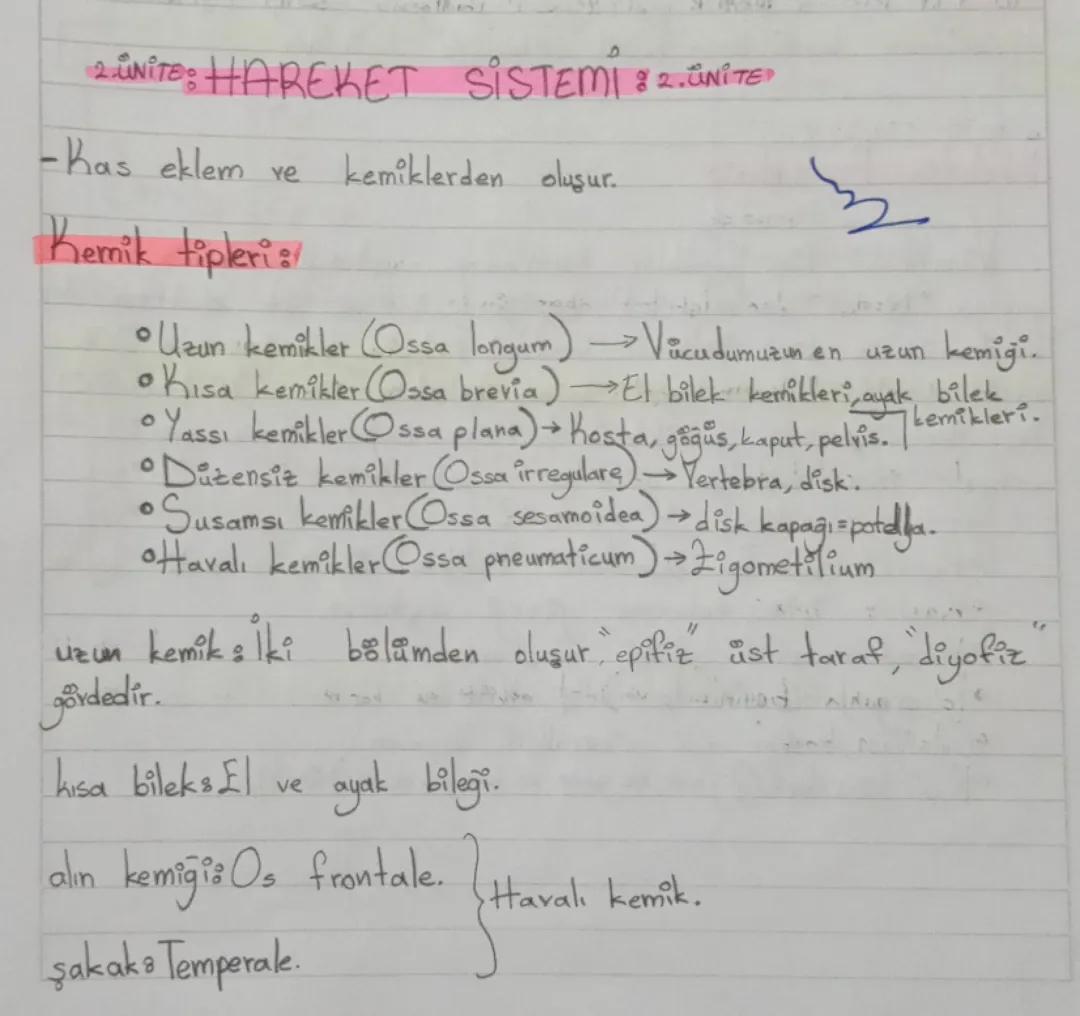 2.ÜNİTE: HAREKET SİSTEMİ: 2.ÜNİTE
-Kas eklem ve kemiklerden oluşur.
Kemik tipleri:
• Uzun kemikler (Ossa longum) → Vücudumuzun en uzun kemiği.
• Kısa kemikler (Ossa brevia) → El bilek kemikleri, ayak bilek kemikleri.
• Yassı kemikler (Ossa plana) → Kosta, göğüs, kaput, pelvis.
• Düzensiz kemikler (Ossa irregulare) → Vertebra, disk.
• Susamsı kemikler (Ossa sesamoidea) → disk kapağı = potella.
• Havalı kemikler (Ossa pneumaticum) → Zigometilium
uzun kemik: İki bölümden oluşur, "epifiz" üst taraf, "diyofiz"
gövdedir.
kısa bilek: El ve ayak bileği.
alın kemiği: Os frontale.
Havalı kemik.
şakak: Temperale.